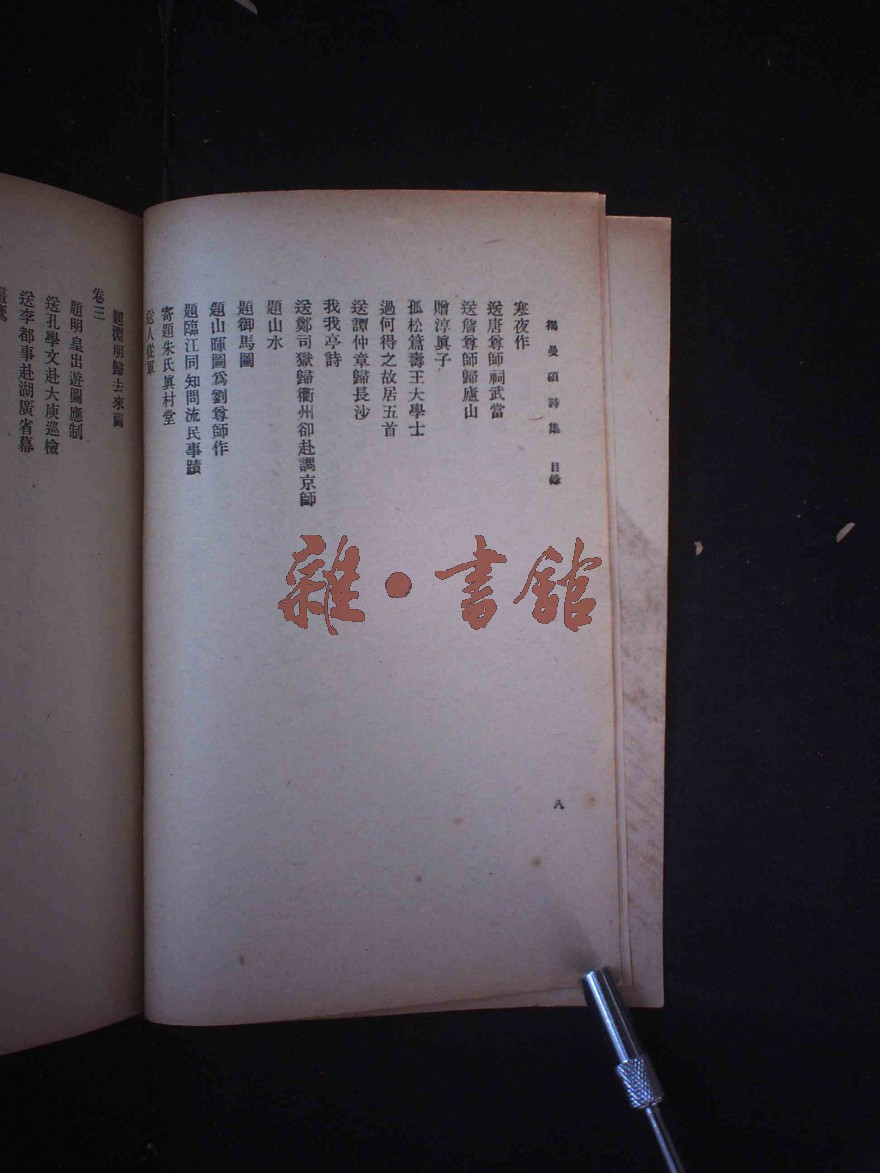 揭曼碩詩集 目錄
寒夜作
送唐尊師祠武當
送詹尊師歸廬山
贈淳眞子
孤松篇壽王大學士
過何得之故居五首
送譚仲章歸長沙
我我亭詩
送鄭司獄歸衢州卻赴調京師
題山水
題御馬圖
題山暉圖爲劉尊師作
題臨江同知問流民事蹟
寄題朱氏眞村堂
送人從軍
八
題淵明歸去來圖
卷三
題明皇出遊圖應制
送孔學文赴大庾巡檢
送李都事赴湖廣省幕
雜·書館